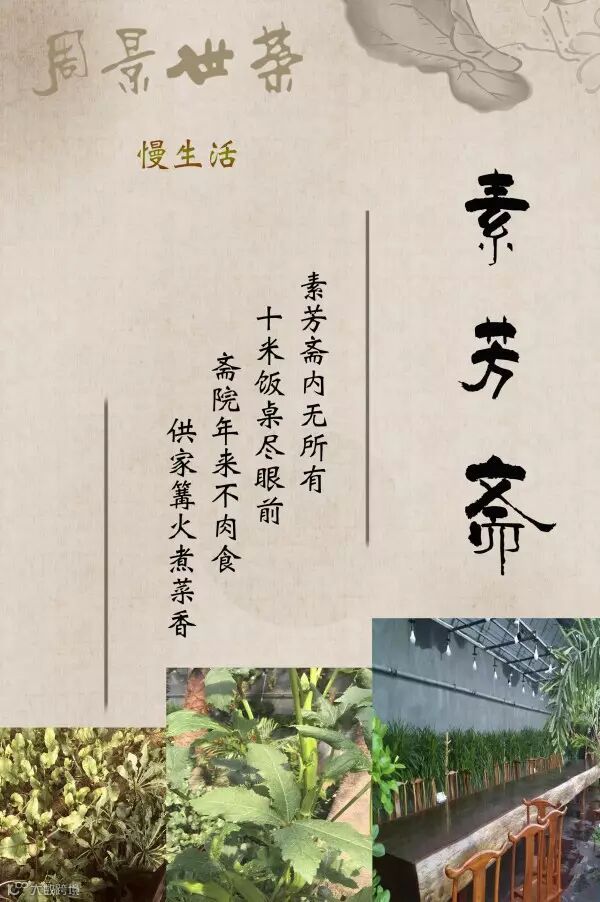 周景世荣
慢生活
素芳斋
素芳斋内无所有
十米饭桌尽眼前
斋院年来不肉食
供家篝火煮菜香
大数跨境